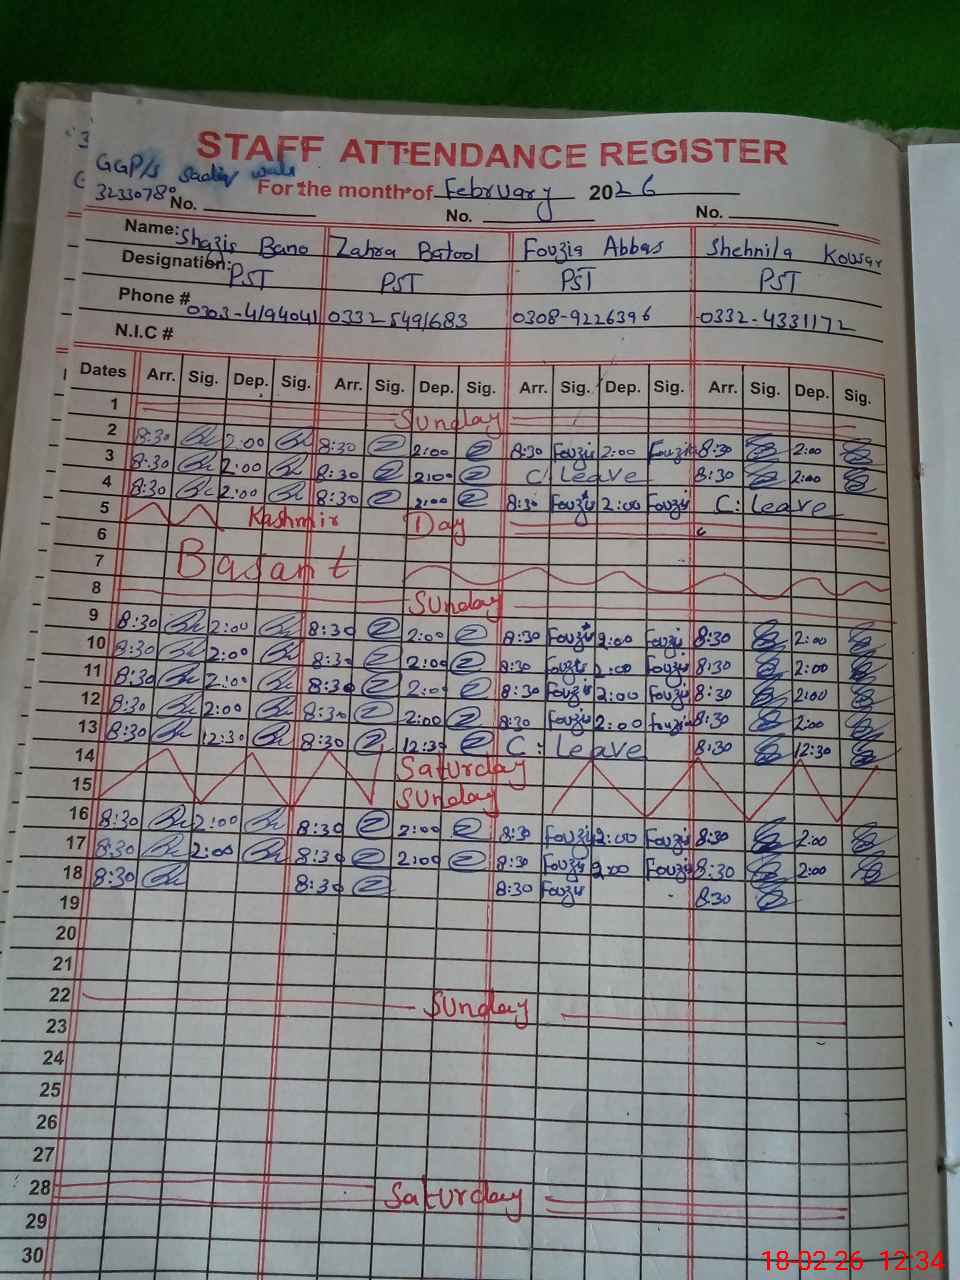 STAFF ATTENDANCE REGISTER
GGP/s
32330780
For the month of February 2026
No. No. No.
Name: Shazis Bano Zahra Batool Fouzia Abbas Shehnila Kousar
Designation: PST PST PST PST
Phone # 0303-4194041 0332 5491683 0308-9226396 0332-4331172
N.I.C #
Dates Arr. Sig. Dep. Sig. Arr. Sig. Dep. Sig. Arr. Sig. Dep. Sig. Arr. Sig. Dep. Sig.
1 Sunday
2 8:30 2:00 8:30 2:00 8:30 Fouzia 2:00 Fouzia 8:30 2:00
3 8:30 2:00 8:30 2:00 C: Leave 8:30 2:00
4 8:30 2:00 8:30 2:00 8:30 Fouzia 2:00 Fouzia C: Leave
5 Kashmir Day
6
7 Basant
8 Sunday
9 8:30 2:00 8:30 2:00 8:30 Fouzia 2:00 Fouzia 8:30 2:00
10 8:30 2:00 8:30 2:00 8:30 Fouzia 2:00 Fouzia 8:30 2:00
11 8:30 2:00 8:30 2:00 8:30 Fouzia 2:00 Fouzia 8:30 2:00
12 8:30 2:00 8:30 2:00 8:30 Fouzia 2:00 Fouzia 8:30 2:00
13 8:30 12:30 8:30 12:30 C: Leave 8:30 12:30
14 Saturday
15 Sunday
16 8:30 2:00 8:30 2:00 8:30 Fouzia 2:00 Fouzia 8:30 2:00
17 8:30 2:00 8:30 2:00 8:30 Fouzia 2:00 Fouzia 8:30 2:00
18 8:30 8:30 8:30 Fouzia 8:30
19
20
21
22 Sunday
23
24
25
26
27
28 Saturday
29
30
18-02-26 12:34